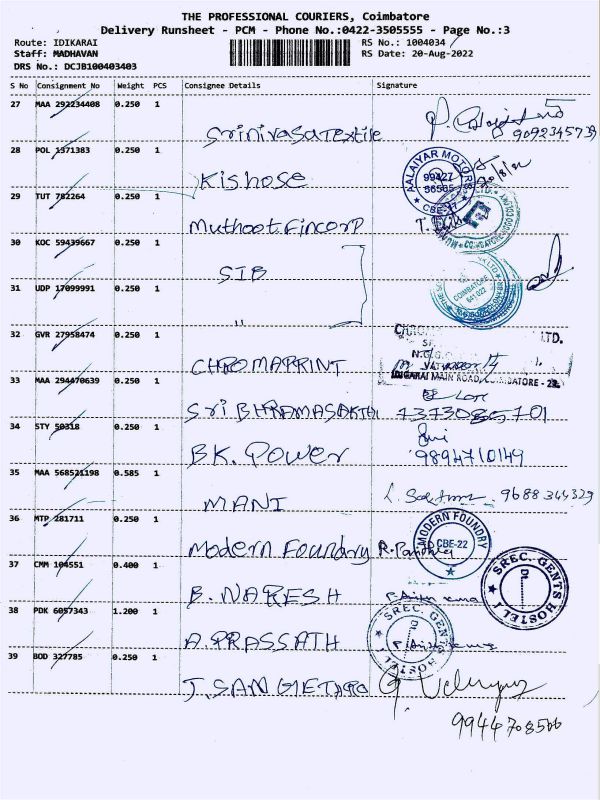 THE PROFESSIONAL COURIERS, Coimbatore
Delivery Runsheet - PCM - Phone No.:0422-3505555 - Page No.:3
Route: IDIKARAI
RS No.: 1004034
Staff: MADHAVAN
RS Date: 20-Aug-2022
DRS No.: DCJB100403403
S No Consignment No Weight PCS Consignee Details Signature
27 MAA 292234408 0.250 1
Srinivasa Textile 9092345739
28 POL 1371383 0.250 1
Kishose
AALAIYAR MOTORS
99427
56565
CBE-17
29 TUT 782264 0.250 1
Muthoot Fincorp
30 KOC 59439667 0.250 1
SIB
31 UDP 17099991 0.250 1
"
COIMBATORE
641 022
32 GVR 27958474 0.250 1
CHROMAPRINT
LTD.
IDIGARAI MAIN ROAD, COIMBATORE - 22.
33 MAA 294470639 0.250 1
Sri BHRAMASAKTHI
34 STY 50318 0.250 1
BK. Power 9894710149
35 MAA 568521198 0.585 1
MANI 9688344329
36 MTP 281711 0.250 1
Modern Foundry
MODERN FOUNDRY
CBE-22
37 CMM 104551 0.400 1
B. NARESH
SREC. GENTS HOSTEL I
38 PDK 6057343 1.200 1
A. PRASSATH
SREC. GENTS HOSTEL
39 BOD 327785 0.250 1
J. SANGEETHA
9944708566